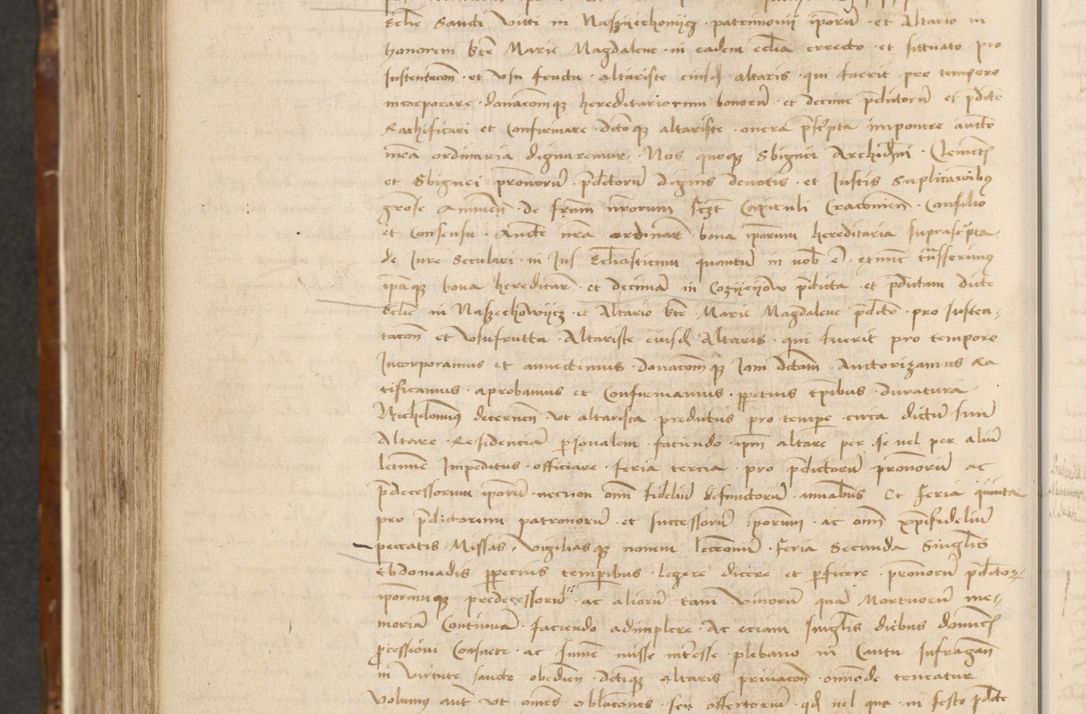 Ecclie Sancti Viti in Naszyechowycz · patrimonij iporũ · et Altario in
honorem bte Marie Magdalene · in eadem eclia errecto · et sittuato pro
sustentacon · et usu fructu · altariste eiusd altaris · qui fuerit · pro tempore
incorporare · donacomq hereditariorum bonorũ · et decime pdictorũ et pdicte
Rathificari et Confirmare · dictoq altariste · onera pscpta imponere aucte
nra ordinaria dignaremur · Nos quoq Sbignei Archidni · Clementis
et Sbignei pronorũ · pdictorũ dignis devotis · et Iustis Suplicacõibq
grose Annuen · de frum nrorum Capituli Cracovien · Consilio
et Consensu · Aucte nra ordinaria · bona iporum hereditaria suprascpta
de Iure Seculari · in Ius Ecclesiasticum quantum in nob ẽ · extunc trasferimq
ipaq bona hereditar · et decimã in pdicta · et pdictam dicte
Eclie in Naszechowycz · et Altario bte · Marie Magdalene pdicte · pro susten-
tacon et Usufructu · Altariste eiusd Altaris · qui fuerit pro tempore
Incorporamus et annectimus · donacomq Iam dictam · Auctorizamus Ra
tificamus · aprobamus et Confirmamus · ppetuis tpibus · duratura
Nichilominq decernen · ut altarista predictus pro tempe · circa dictũ suũ
Altare · Residenciã psonalem · faciendo · ipm altare per · se vel per aliũ
letime Impeditus · officiare · feria tercia · pro pdictorũ pronorũ ac
pdecessorum iporũ · necnon omi fideliũ defunctorũ · aiabus Et feria quinta
pro pdictorum patronorũ · et successorũ iporum · ac omi xpifideliũ
peccatis · Missas · vigiliasq novem leccionũ · Feria Secunda Singlis
Ebdomadis ppetuis temporibus · legere dicere et pficere · pronorũ pdictor
iporumq predecessorũ · ac aliorũ · tam vivorũ quã Mortuorũ me-
moriã Continuã · faciendo adimplere · Ac eciam singlis diebus domicis
pcessioni Consuete · ac sume misse interesse · plebano in Cantu sufragan
in virtute sancte obedien · dictiq altaris privacon · omode teneatur
Volumq aut ut omes · oblacones · seu offertoriũ · qd vel que · in festo pdicte